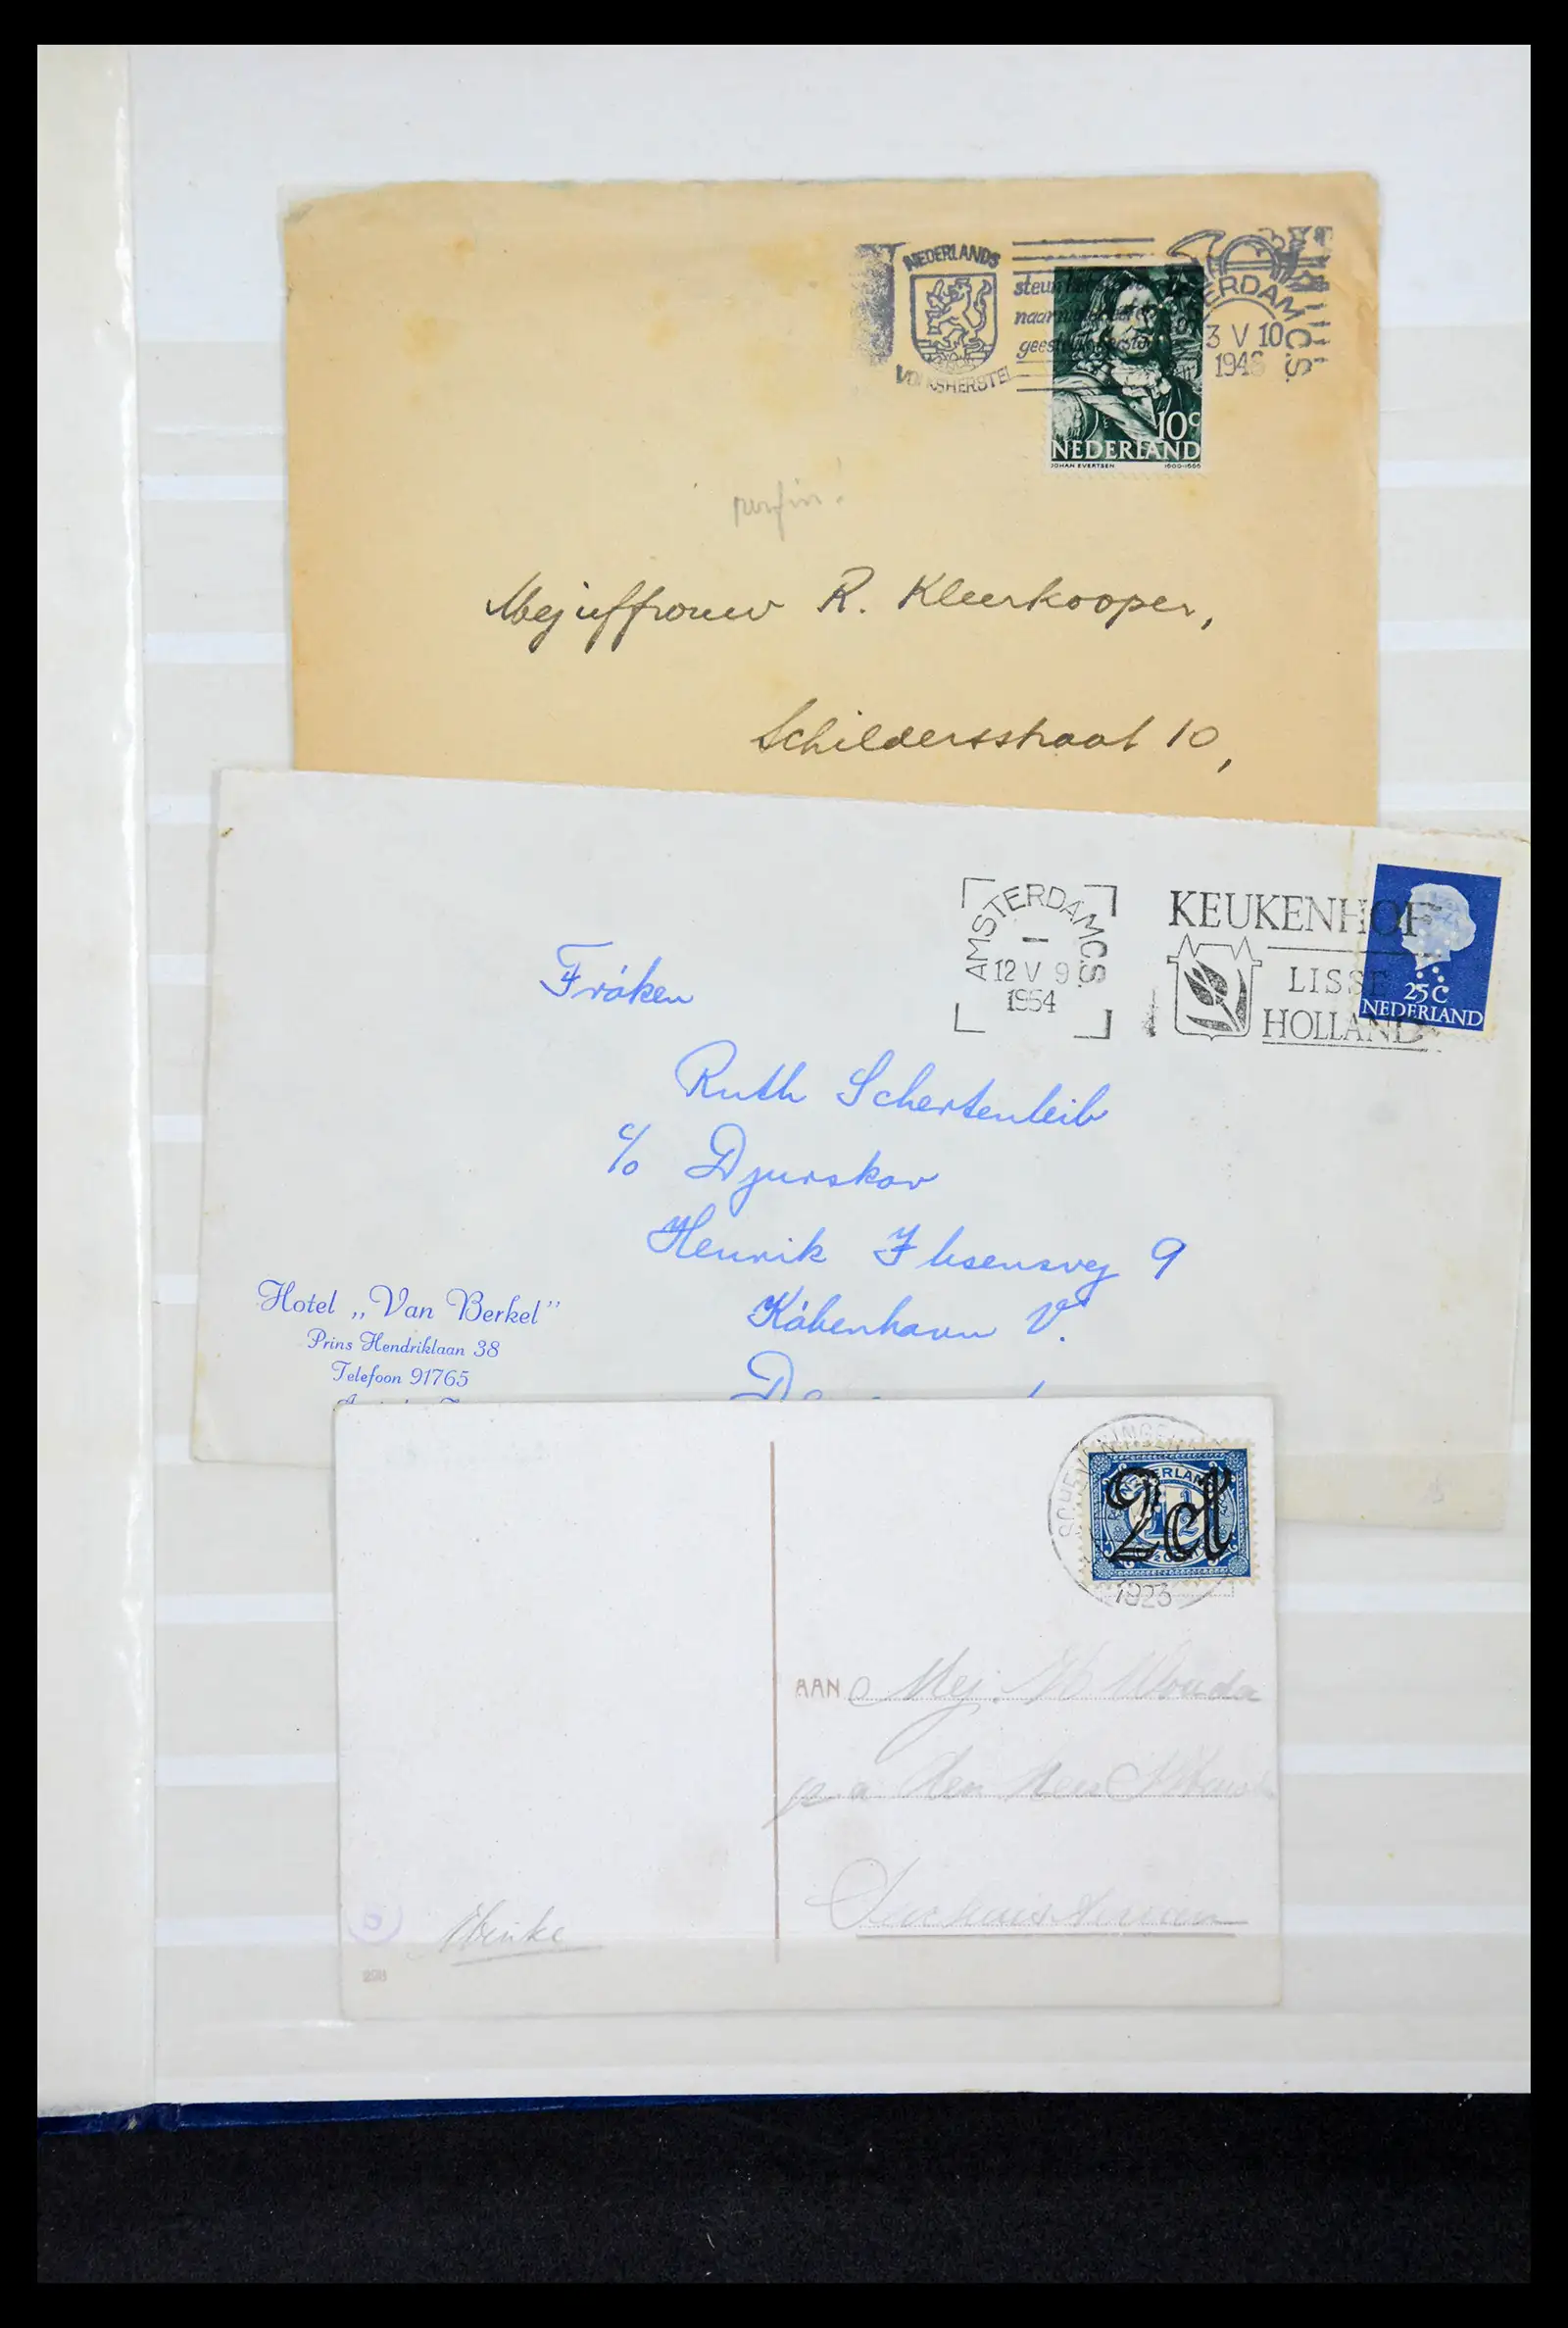 NEDERLANDS
VOLKSHERSTEL
AMSTERDAM C.S.
3 V 10
194
10c
NEDERLAND
JOHAN EVERTSEN 1600-1666
perfin!
Mejuffrouw R. Kleerkooper,
Schildersstraat 10,
AMSTERDAM C.S.
12 V 9
1954
KEUKENHOF
LISSE
HOLLAND
25 C
NEDERLAND
Fröken
Ruth Schertenleib
c/o Djurskov
Henrik Ibsensvej 9
Köbenhavn V.
Hotel „Van Berkel”
Prins Hendriklaan 38
Telefoon 91765
SCHEVENINGEN
1923
NEDERLAND
2 ct
AAN Mej. Wouda
p.a den Heer